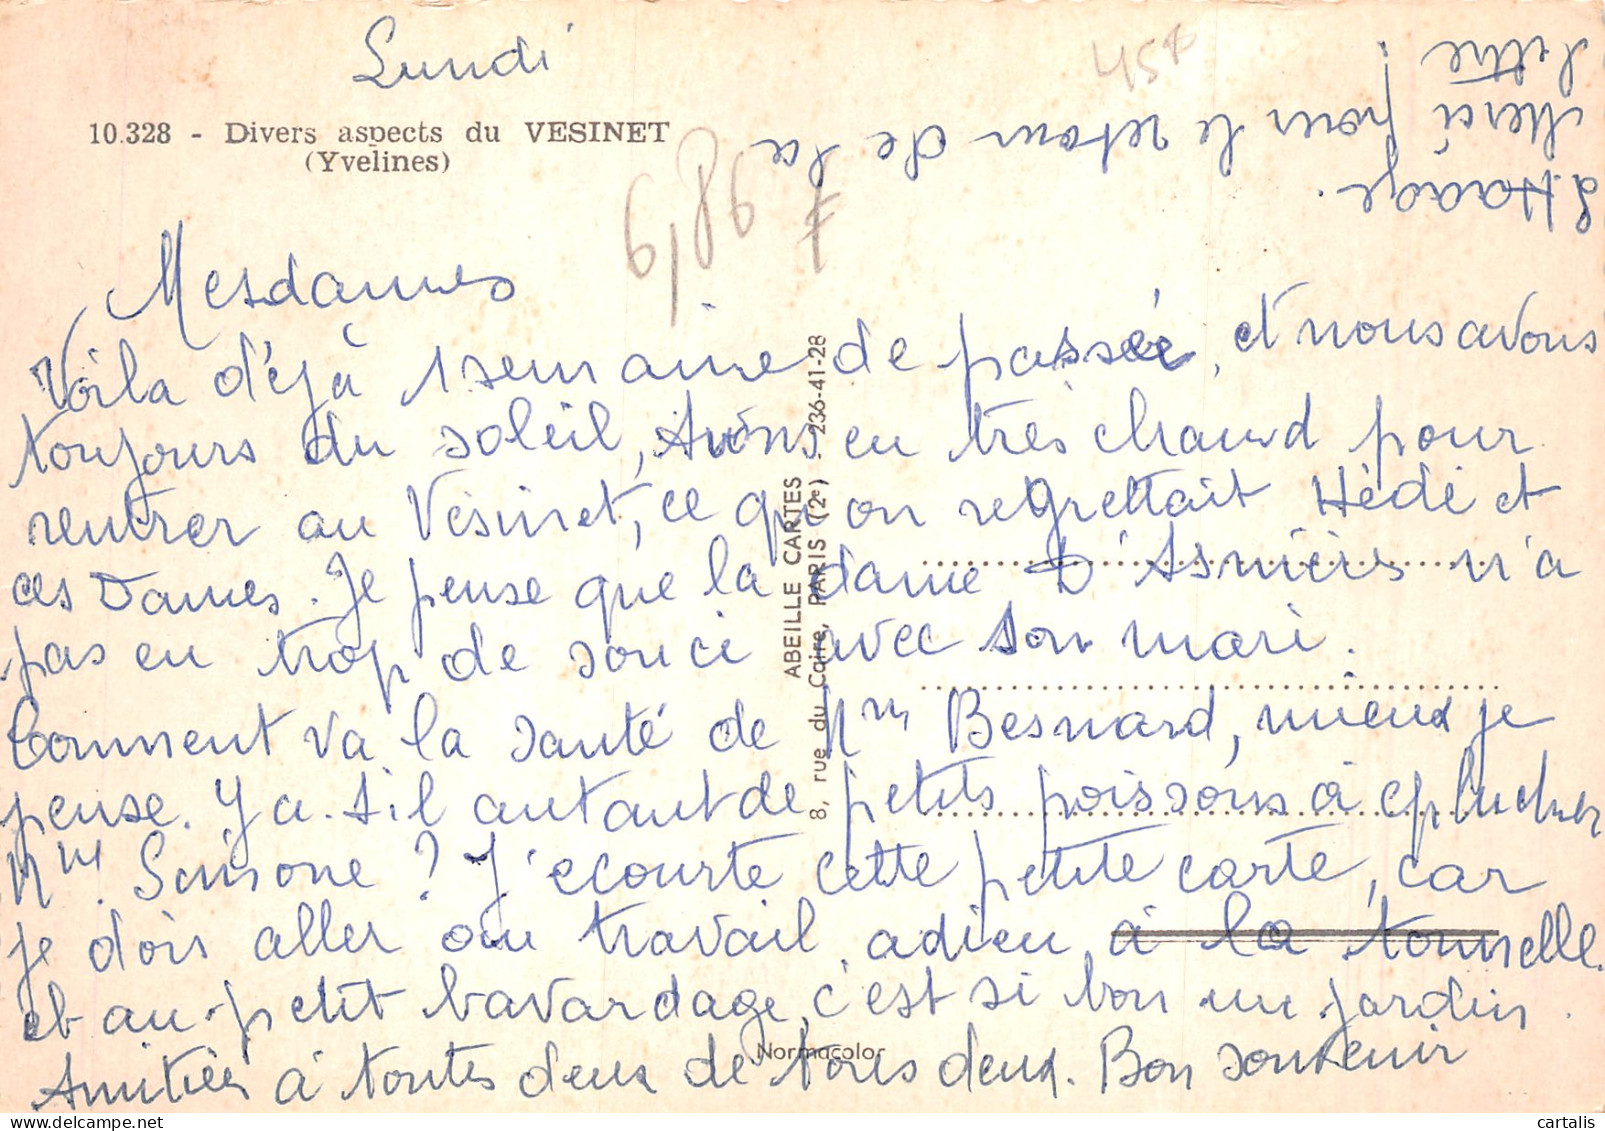 Lundi
10.328 - Divers aspects du VESINET
(Yvelines)
45f
Mesdames
Voila déjà 1 semaine de passée, et nous avons
toujours du soleil, Avons eu très chaud pour
rentrer au Vésinet, ce qu'on regrettait Hédi et
ces Dames. Je pense que la dame D'Asnières n'a
pas eu trop de souci avec son mari.
Comment va la santé de Mme Besnard, mieux je
pense. Y a-t-il autant de petits poissons à éplucher
Mme Saisone ? J'écourte cette petite carte, car
je dois aller au travail, adieu à la tonnelle
et au petit bavardage, c'est si bon un jardin.
Amitiés à toutes deux de tores deux. Bon souvenir
S. Haage.
Merci pour le retour de la
lettre !
ABEILLE CARTES
8, rue du Caire, PARIS (2e) - 236-41-28
Normacolor
cartalis